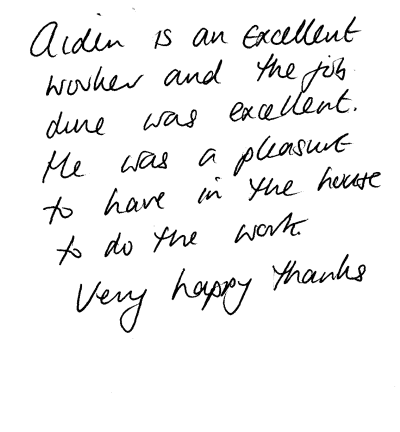 Aiden is an Excellent
worker and the job
done was excellent.
He was a pleasure
to have in the house
to do the work.
Very happy thanks